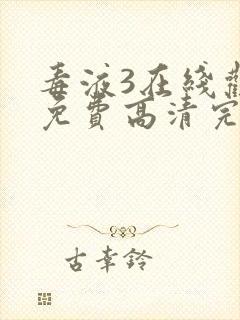 毒液3在线
免费高清完
古幸铃